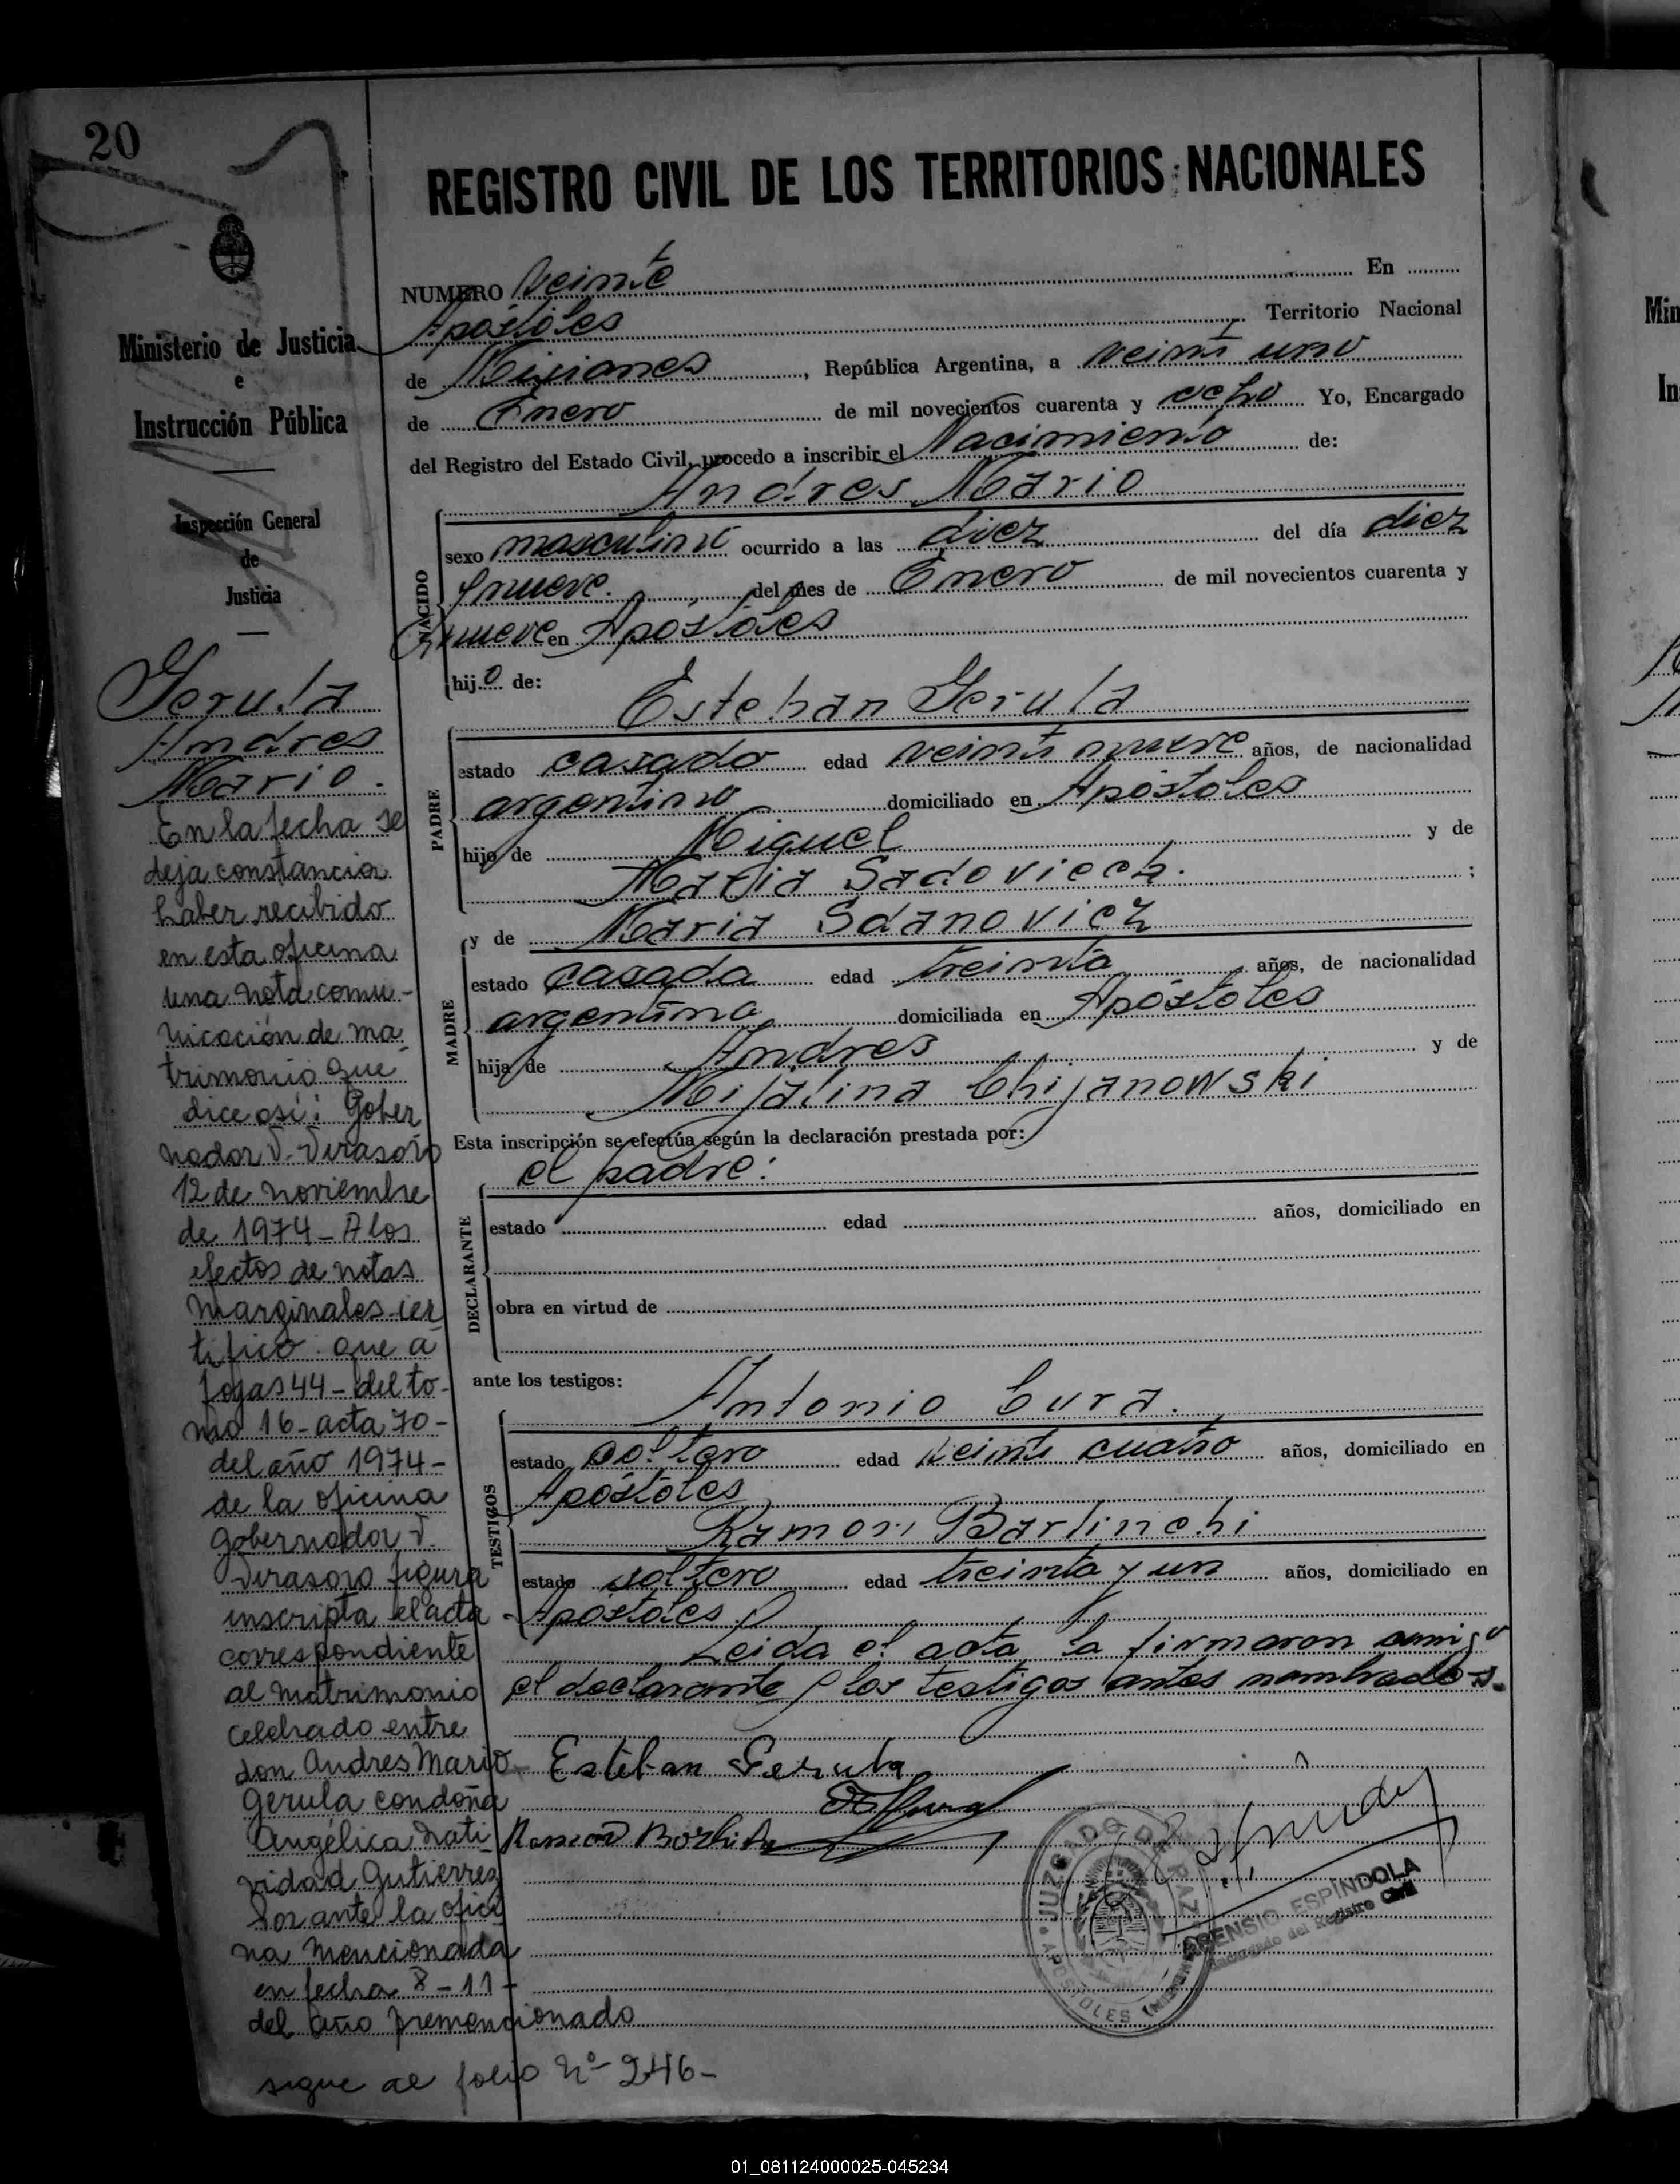 20
REGISTRO CIVIL DE LOS TERRITORIOS NACIONALES
Ministerio de Justicia
e
Instrucción Pública
Inspección General
de
Justicia
NUMERO Veinte En
Apóstoles Territorio Nacional
de Misiones, República Argentina, a veinti uno
de Enero de mil novecientos cuarenta y ocho Yo, Encargado
del Registro del Estado Civil, procedo a inscribir el Nacimiento de:
Andres Mario
NACIDO
sexo masculino ocurrido a las diez del día diez
y nueve. del mes de Enero de mil novecientos cuarenta y
nueve en Apóstoles
hijo de:
Esteban Gerula
PADRE
estado casado edad veinti nueve años, de nacionalidad
argentino domiciliado en Apóstoles
hijo de Miguel y de
Maria Sadoviech. ;
y de Maria Sdanovicz
MADRE
estado casada edad treinta años, de nacionalidad
argentina domiciliada en Apóstoles
hija de Andres y de
Mijalina Chijanowski
Esta inscripción se efectúa según la declaración prestada por:
el padre:
DECLARANTE
estado edad años, domiciliado en
obra en virtud de
ante los testigos:
Antonio Cura.
TESTIGOS
estado soltero edad veinti cuatro años, domiciliado en
Apóstoles
Ramon Barlinchi
estado soltero edad treinta y un años, domiciliado en
Apóstoles.
Leida el acta, la firmaron conmigo
el declarante y los testigos antes nombrados.
Esteban Gerula
Ramon
JUZGADO DE PAZ
APOSTOLES (MISIONES)
ASENSIO ESPINDOLA
Encargado del Registro Civil
Gerula
Andres
Mario.
En la fecha se
deja constancia
haber recibido
en esta oficina
una nota comu-
nicación de ma
trimonio que
dice así: Gober
nador V. Virasoro
12 de noviembre
de 1974 - A los
efectos de notas
marginales cer
tifico que a
fojas 44 - del to-
mo 16 - acta 70 -
del año 1974 -
de la oficina
Gobernador V.
Virasoro figura
inscripta el acta
correspondiente
al matrimonio
celebrado entre
don Andres Mario
Gerula con doña
Angélica Nati
vidad Gutierrez
Por ante la ofici
na mencionada
en fecha 8-11-
del año premencionado
sigue al folio Nº 246-
01_081124000025-045234